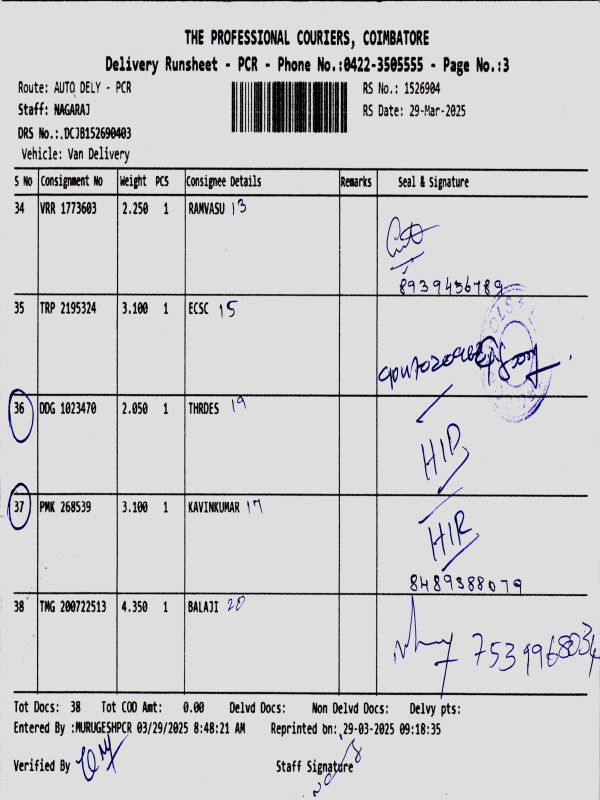 THE PROFESSIONAL COURIERS, COIMBATORE
Delivery Runsheet - PCR - Phone No.:0422-3505555 - Page No.:3
Route: AUTO DELY - PCR RS No.: 1526904
Staff: NAGARAJ RS Date: 29-Mar-2025
DRS No.:.DCJB152690403
Vehicle: Van Delivery
S No Consignment No Weight PCS Consignee Details Remarks Seal & Signature
34 VRR 1773603 2.250 1 RAMVASU 13
8939456789
35 TRP 2195324 3.100 1 ECSC 15
36 DDG 1023470 2.050 1 THRDES 19
37 PMK 268539 3.100 1 KAVINKUMAR 17
8489388079
38 TMG 200722513 4.350 1 BALAJI 20
7539968034
Tot Docs: 38 Tot COD Amt: 0.00 Delvd Docs: Non Delvd Docs: Delvy pts:
Entered By :MURUGESHPCR 03/29/2025 8:48:21 AM Reprinted on: 29-03-2025 09:18:35
Verified By Staff Signature